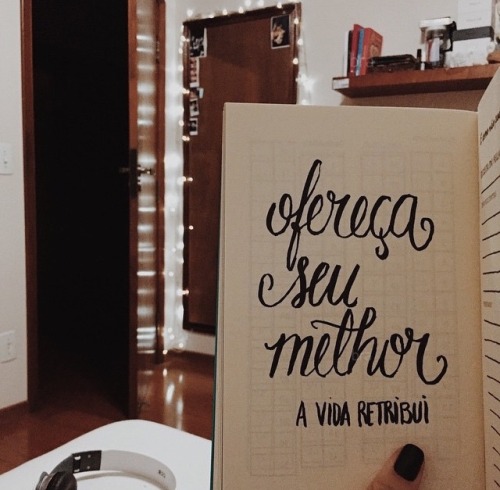 ofereça
seu
melhor
A VIDA RETRIBUI